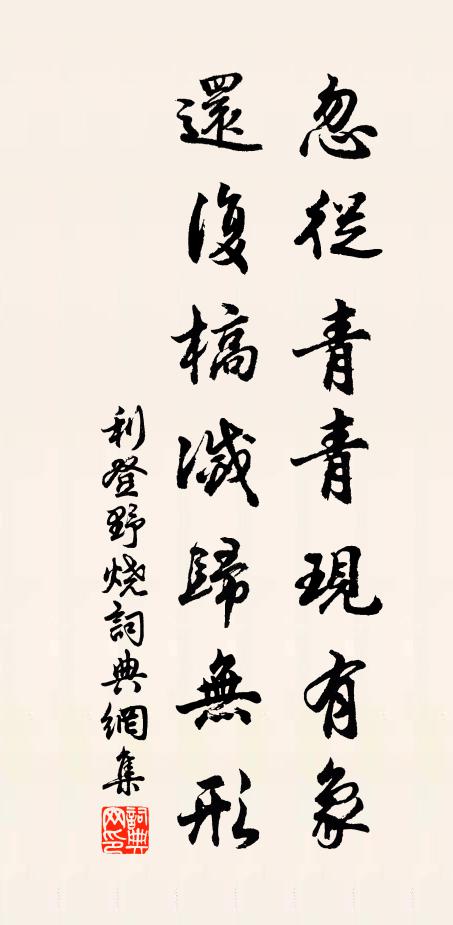 忽從青青現有象
還復槁滅歸無形
利登野烧詞典網集
詞典網印